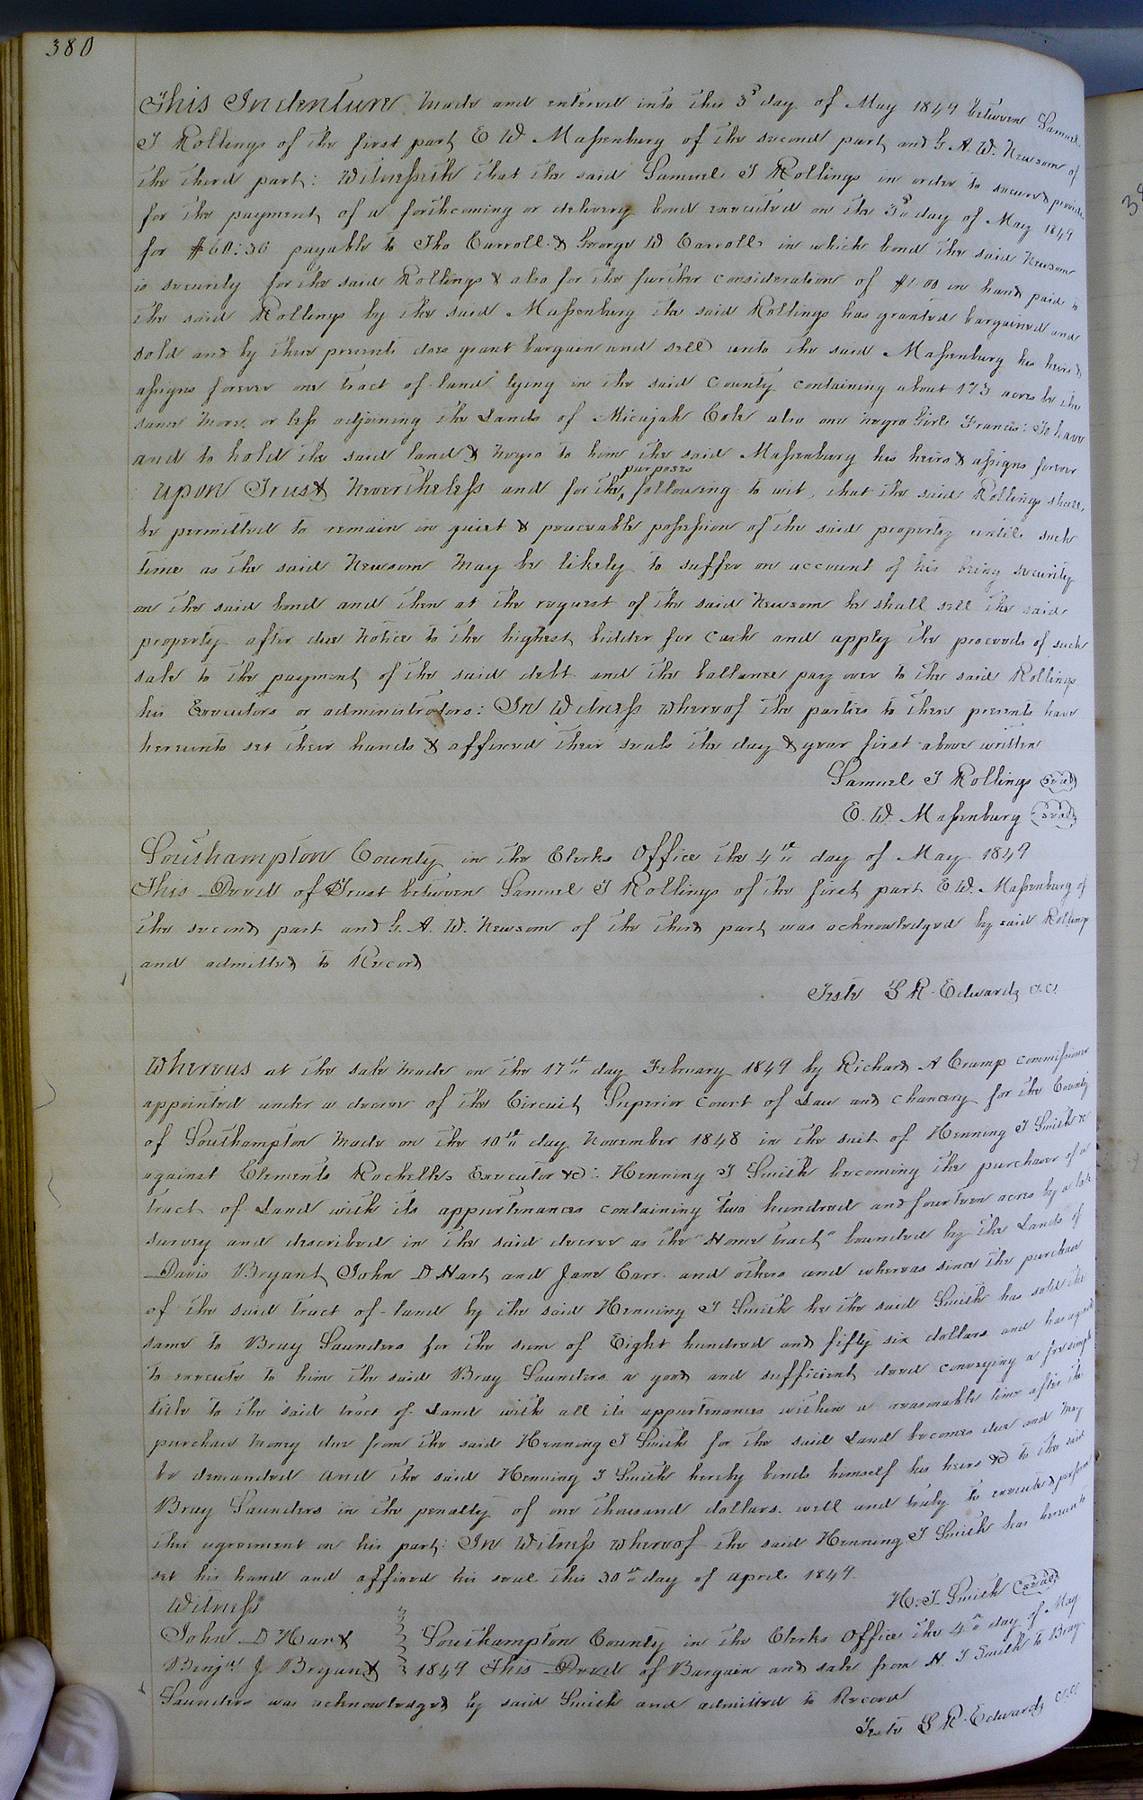 380
This Indenture Made and entered into this 3d day of May 1849 between Samuel
T Rollings of the first part E W Massenburg of the second part and G. A. W. Newsom of
the third part: Witnesseth that the said Samuel T Rollings in order to secure & provide
for the payment of a forthcoming or delivery bond executed on the 3d day of May 1849
for $60:36 payable to Tho Carroll & George W Carroll in which bond the said Newsom
is security for the said Rollings & also for the further consideration of $1.00 in hand paid to
the said Rollings by the said Massenburg the said Rollings has granted bargained and
sold and by these presents does grant bargain and sell unto the said Massenburg his heirs &
assigns forever one tract of land lying in the said County containing about 173 acres be the
same more or less adjoining the Lands of Micajah Cole also one negro Girl Francis: To have
and to hold the said land & Negro to him the said Massenburg his heirs & assigns forever
purposes
Upon Trust Nevertheless and for the following to wit, that the said Rollings shall
be permitted to remain in quiet & peaceable possession of the said property until such
time as the said Newsom may be likely to suffer on account of his being security
on the said bond and then at the request of the said Newsom he shall sell the said
property after due Notice to the highest bidder for cash and apply the proceeds of such
sale to the payment of the said debt and the ballance pay over to the said Rollings
his Executors or administrators: In Witness whereof the parties to these presents have
hereunto set their hands & affixed their seals the day & year first above written
Samuel T Rollings (seal)
E. W. Massenburg (seal)
Southampton County in the Clerks Office the 4th day of May 1849
This Deed of Trust between Samuel T Rollings of the first part E W. Massenburg of
the second part and G. A. W. Newsom of the third part was acknowledged by said Rollings
and admitted to Record
Teste L R. Edwards C.C.
Whereas at the sale made on the 17th day February 1849 by Richard A Crump commissioner
appointed under a decree of the Circuit Superior Court of Law and Chancery for the County
of Southampton Made on the 10th day November 1848 in the suit of Henning T Smith &c
against Clements Rochelle's Executor &c: Henning T Smith becoming the purchaser of a
tract of Land with its appurtenances containing two hundred and fourteen acres by a late
survey and described in the said decree as the "Home tract" bounded by the Lands of
Davis Bryant John D Hart and Jane Carr and others and whereas since the purchase
of the said tract of land by the said Henning T Smith he the said Smith has sold the
same to Bray Saunders for the sum of Eight hundred and fifty six dollars and has agreed
to execute to him the said Bray Saunders a good and sufficient deed conveying a fee simple
title to the said tract of Land with all its appurtenances within a reasonable time after the
purchase money due from the said Henning T Smith for the said Land becomes due and may
be demanded and the said Henning T Smith hereby binds himself his heirs &c to the said
Bray Saunders in the penalty of one thousand dollars well and truly to execute & perform
this agreement on his part: In Witness whereof the said Henning T Smith has hereunto
set his hand and affixed his seal this 30th day of april 1849.
H. T. Smith (seal)
Witness
John D Hart } Southampton County in the Clerks Office the 4th day of May
Benjn J Bryant } 1849 This Deed of Bargain and sale from H. T Smith to Bray
Saunders was acknowledged by said Smith and admitted to Record
Teste L R. Edwards C.C.